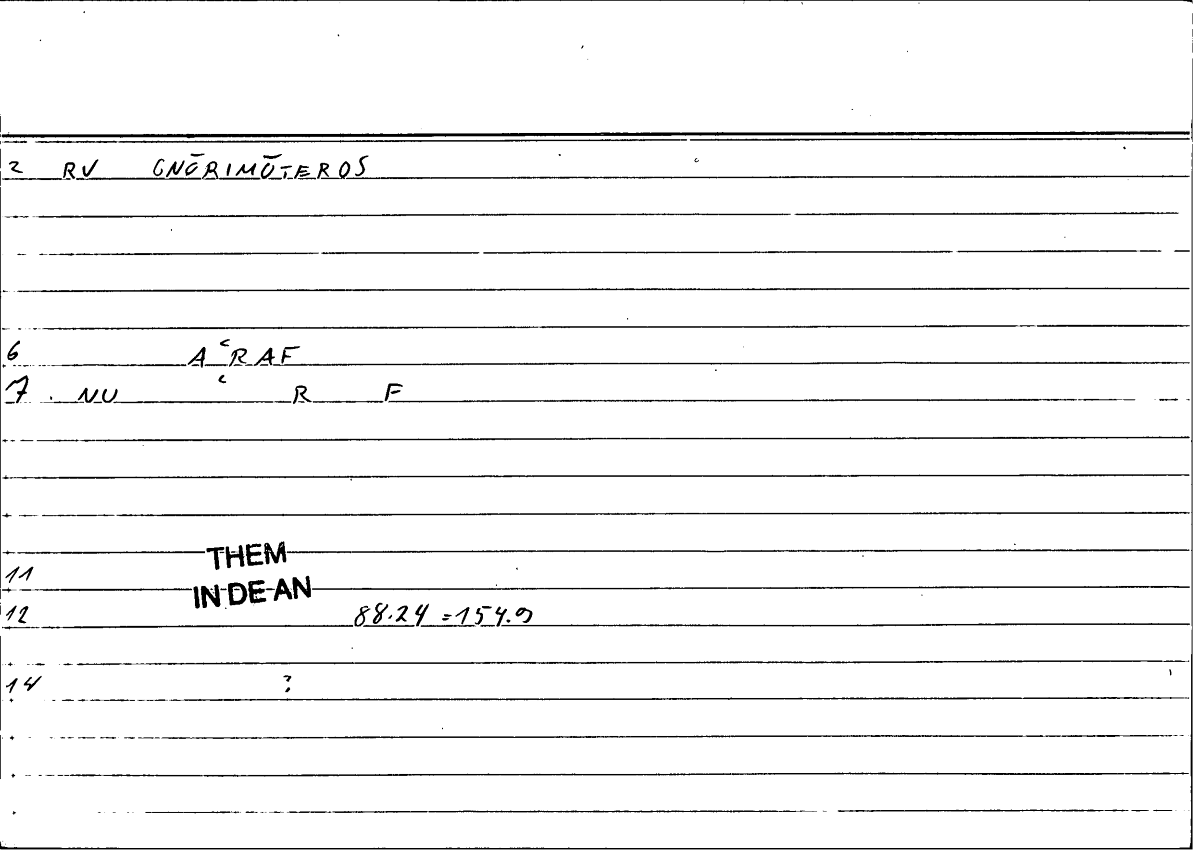 2 RV GNŌRIMŌTEROS
6 A ʿRAF
7 NU ʿ R F
THEM
11
IN DE AN
12 88.24 = 154.9
14 ?